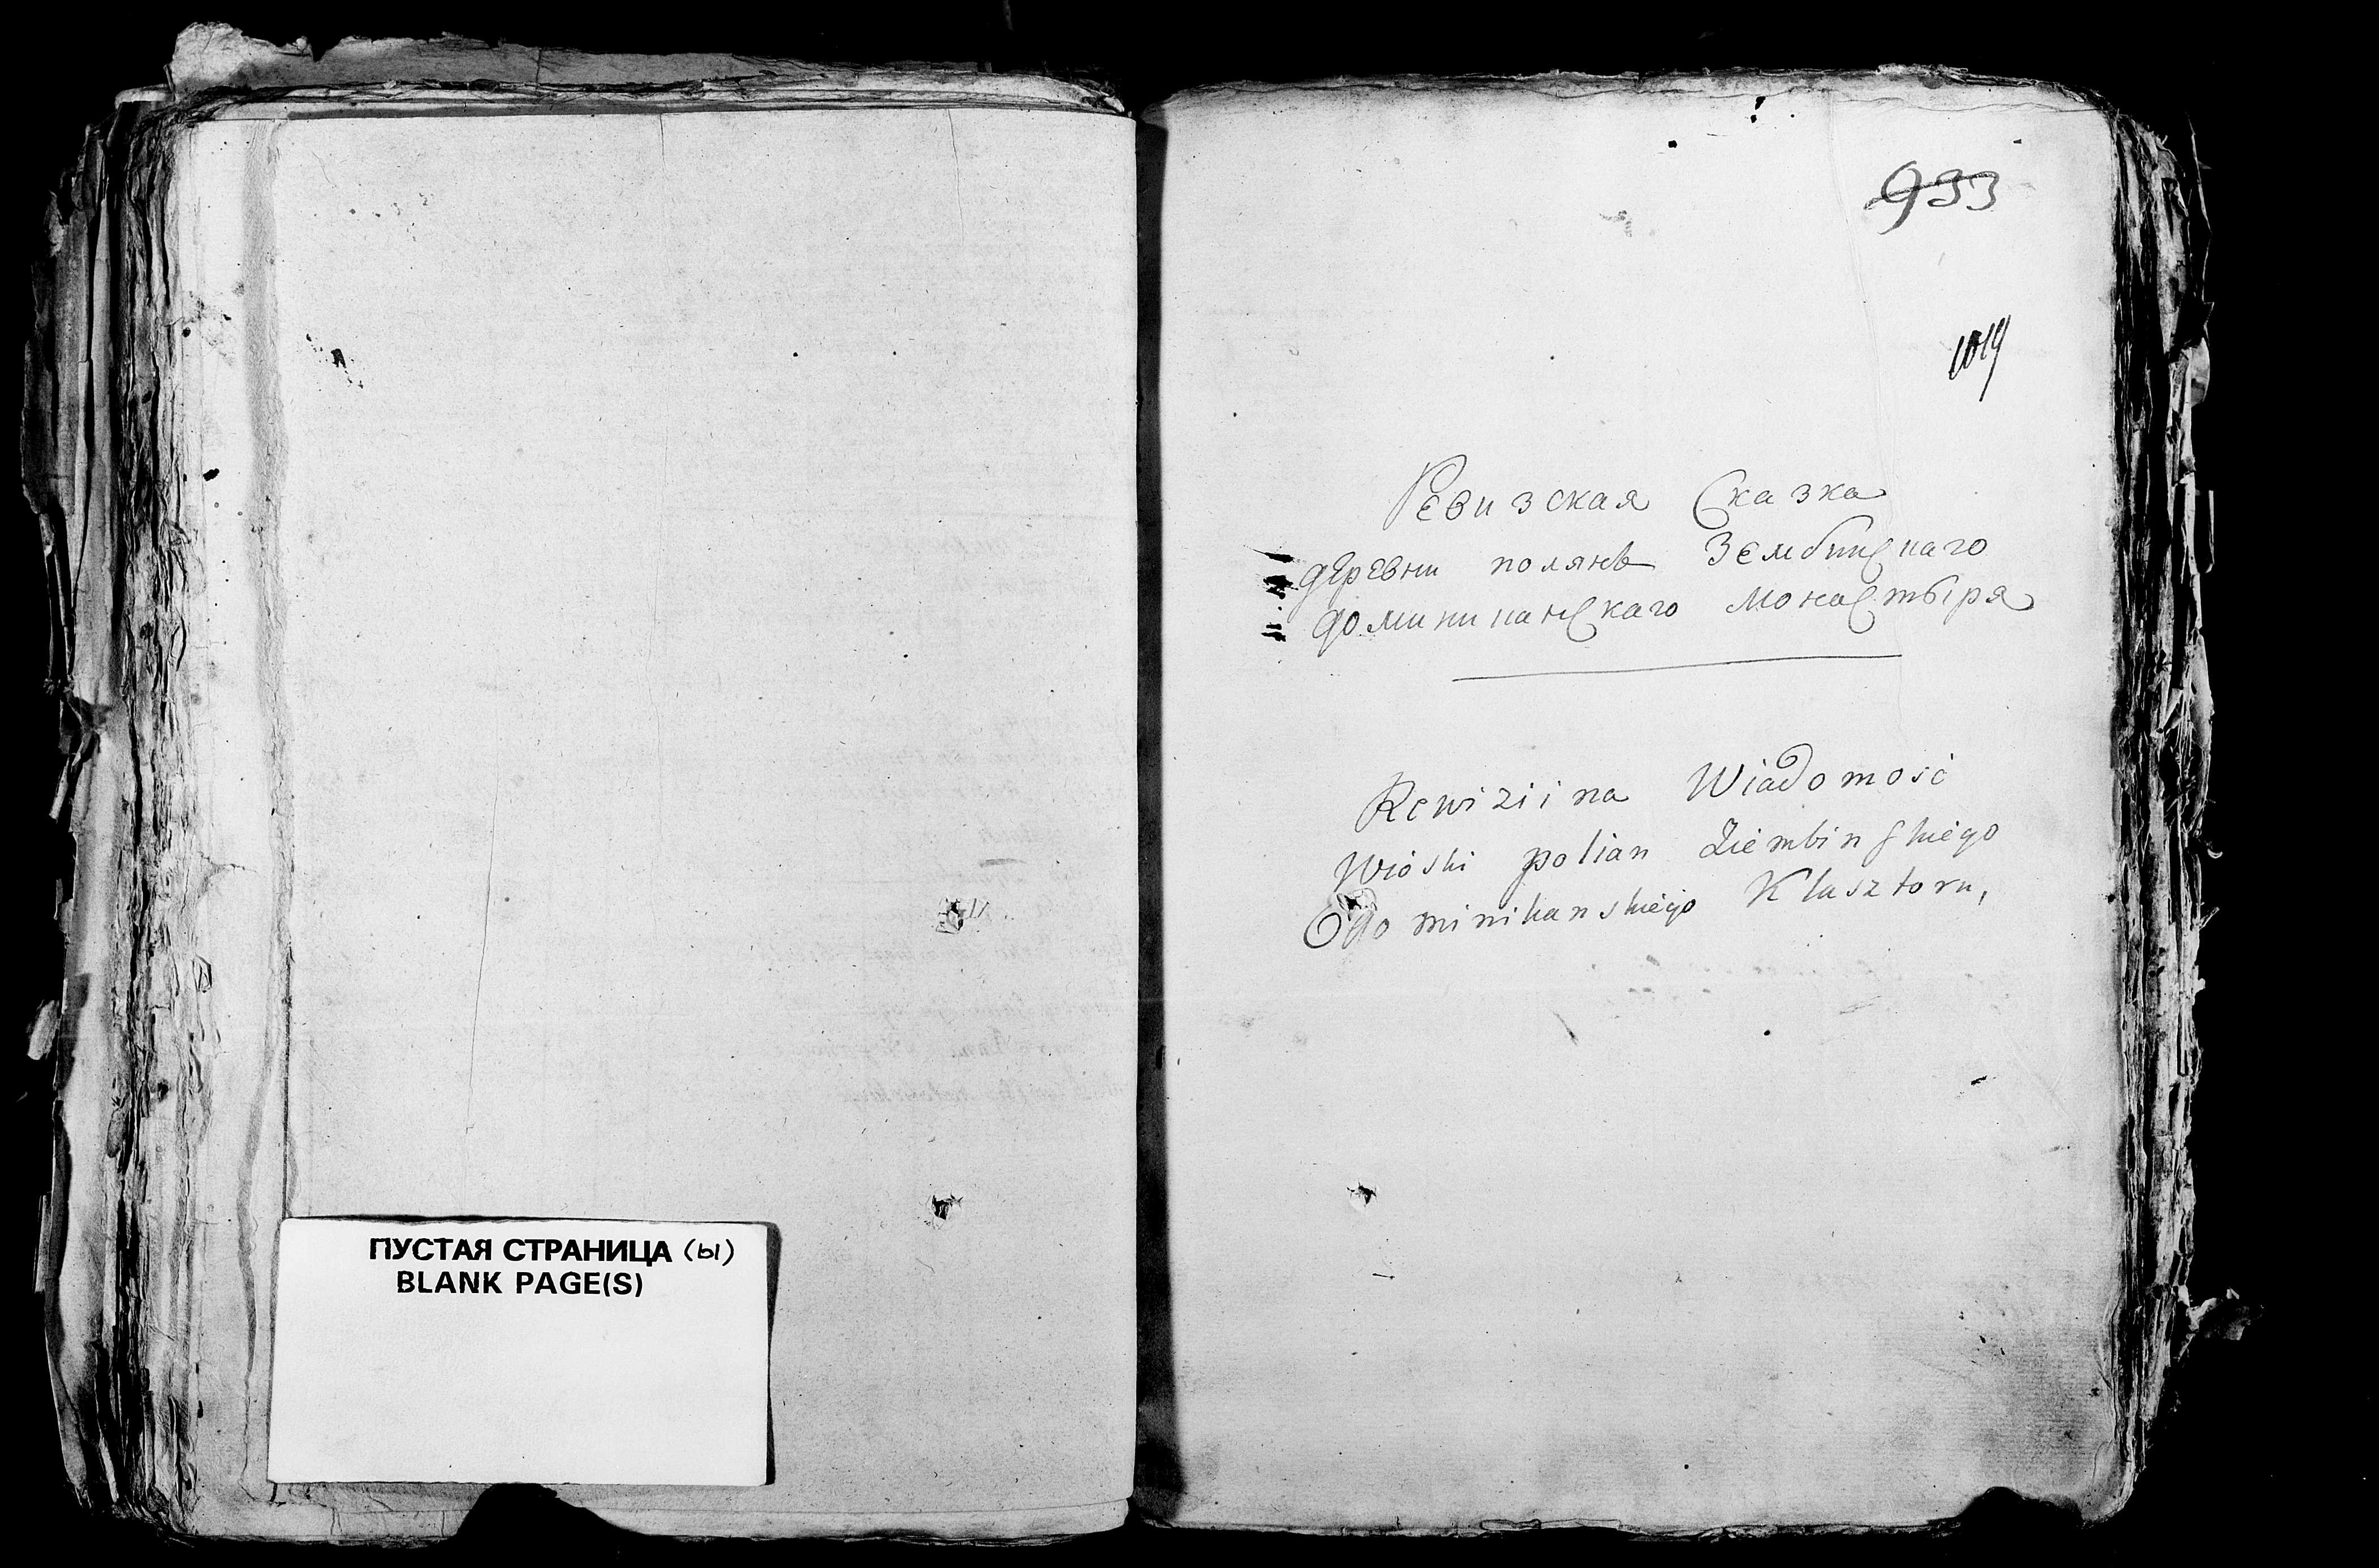 ПУСТАЯ СТРАНИЦА (ы)
BLANK PAGE(S)
933
1014
Ревизская Сказка
деревни полянъ Зембинскаго
доминиканскаго монастыря
Rewiziina Wiadomość
Wioski polian Ziembinskiego
Dominikanskiego Klasztoru,